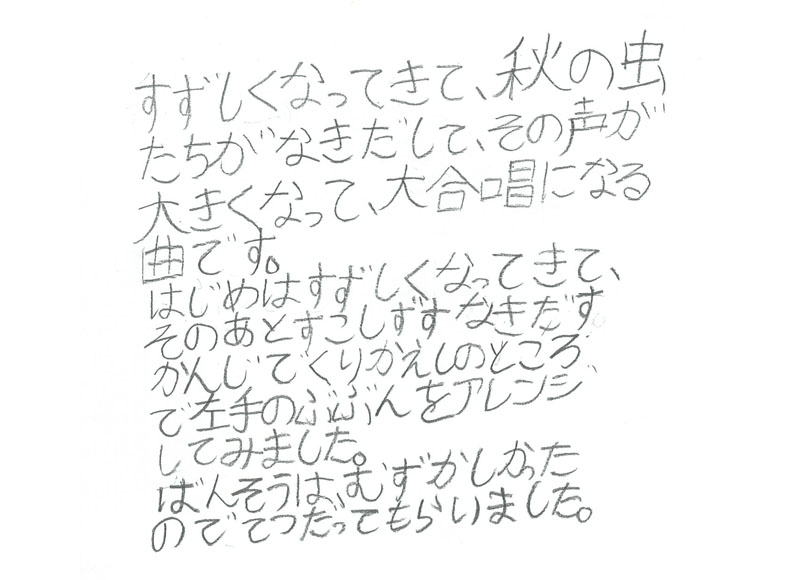 すずしくなってきて、秋の虫
たちがなきだして、その声が
大きくなって、大合唱になる
曲です。
はじめはすずしくなってきて、
そのあとすこしずすなきだす
かんじでくりかえしのところ
で左手のぶぶんをアレンジ
してみました。
ばんそうは、むずかしかった
のでてつだってもらいました。